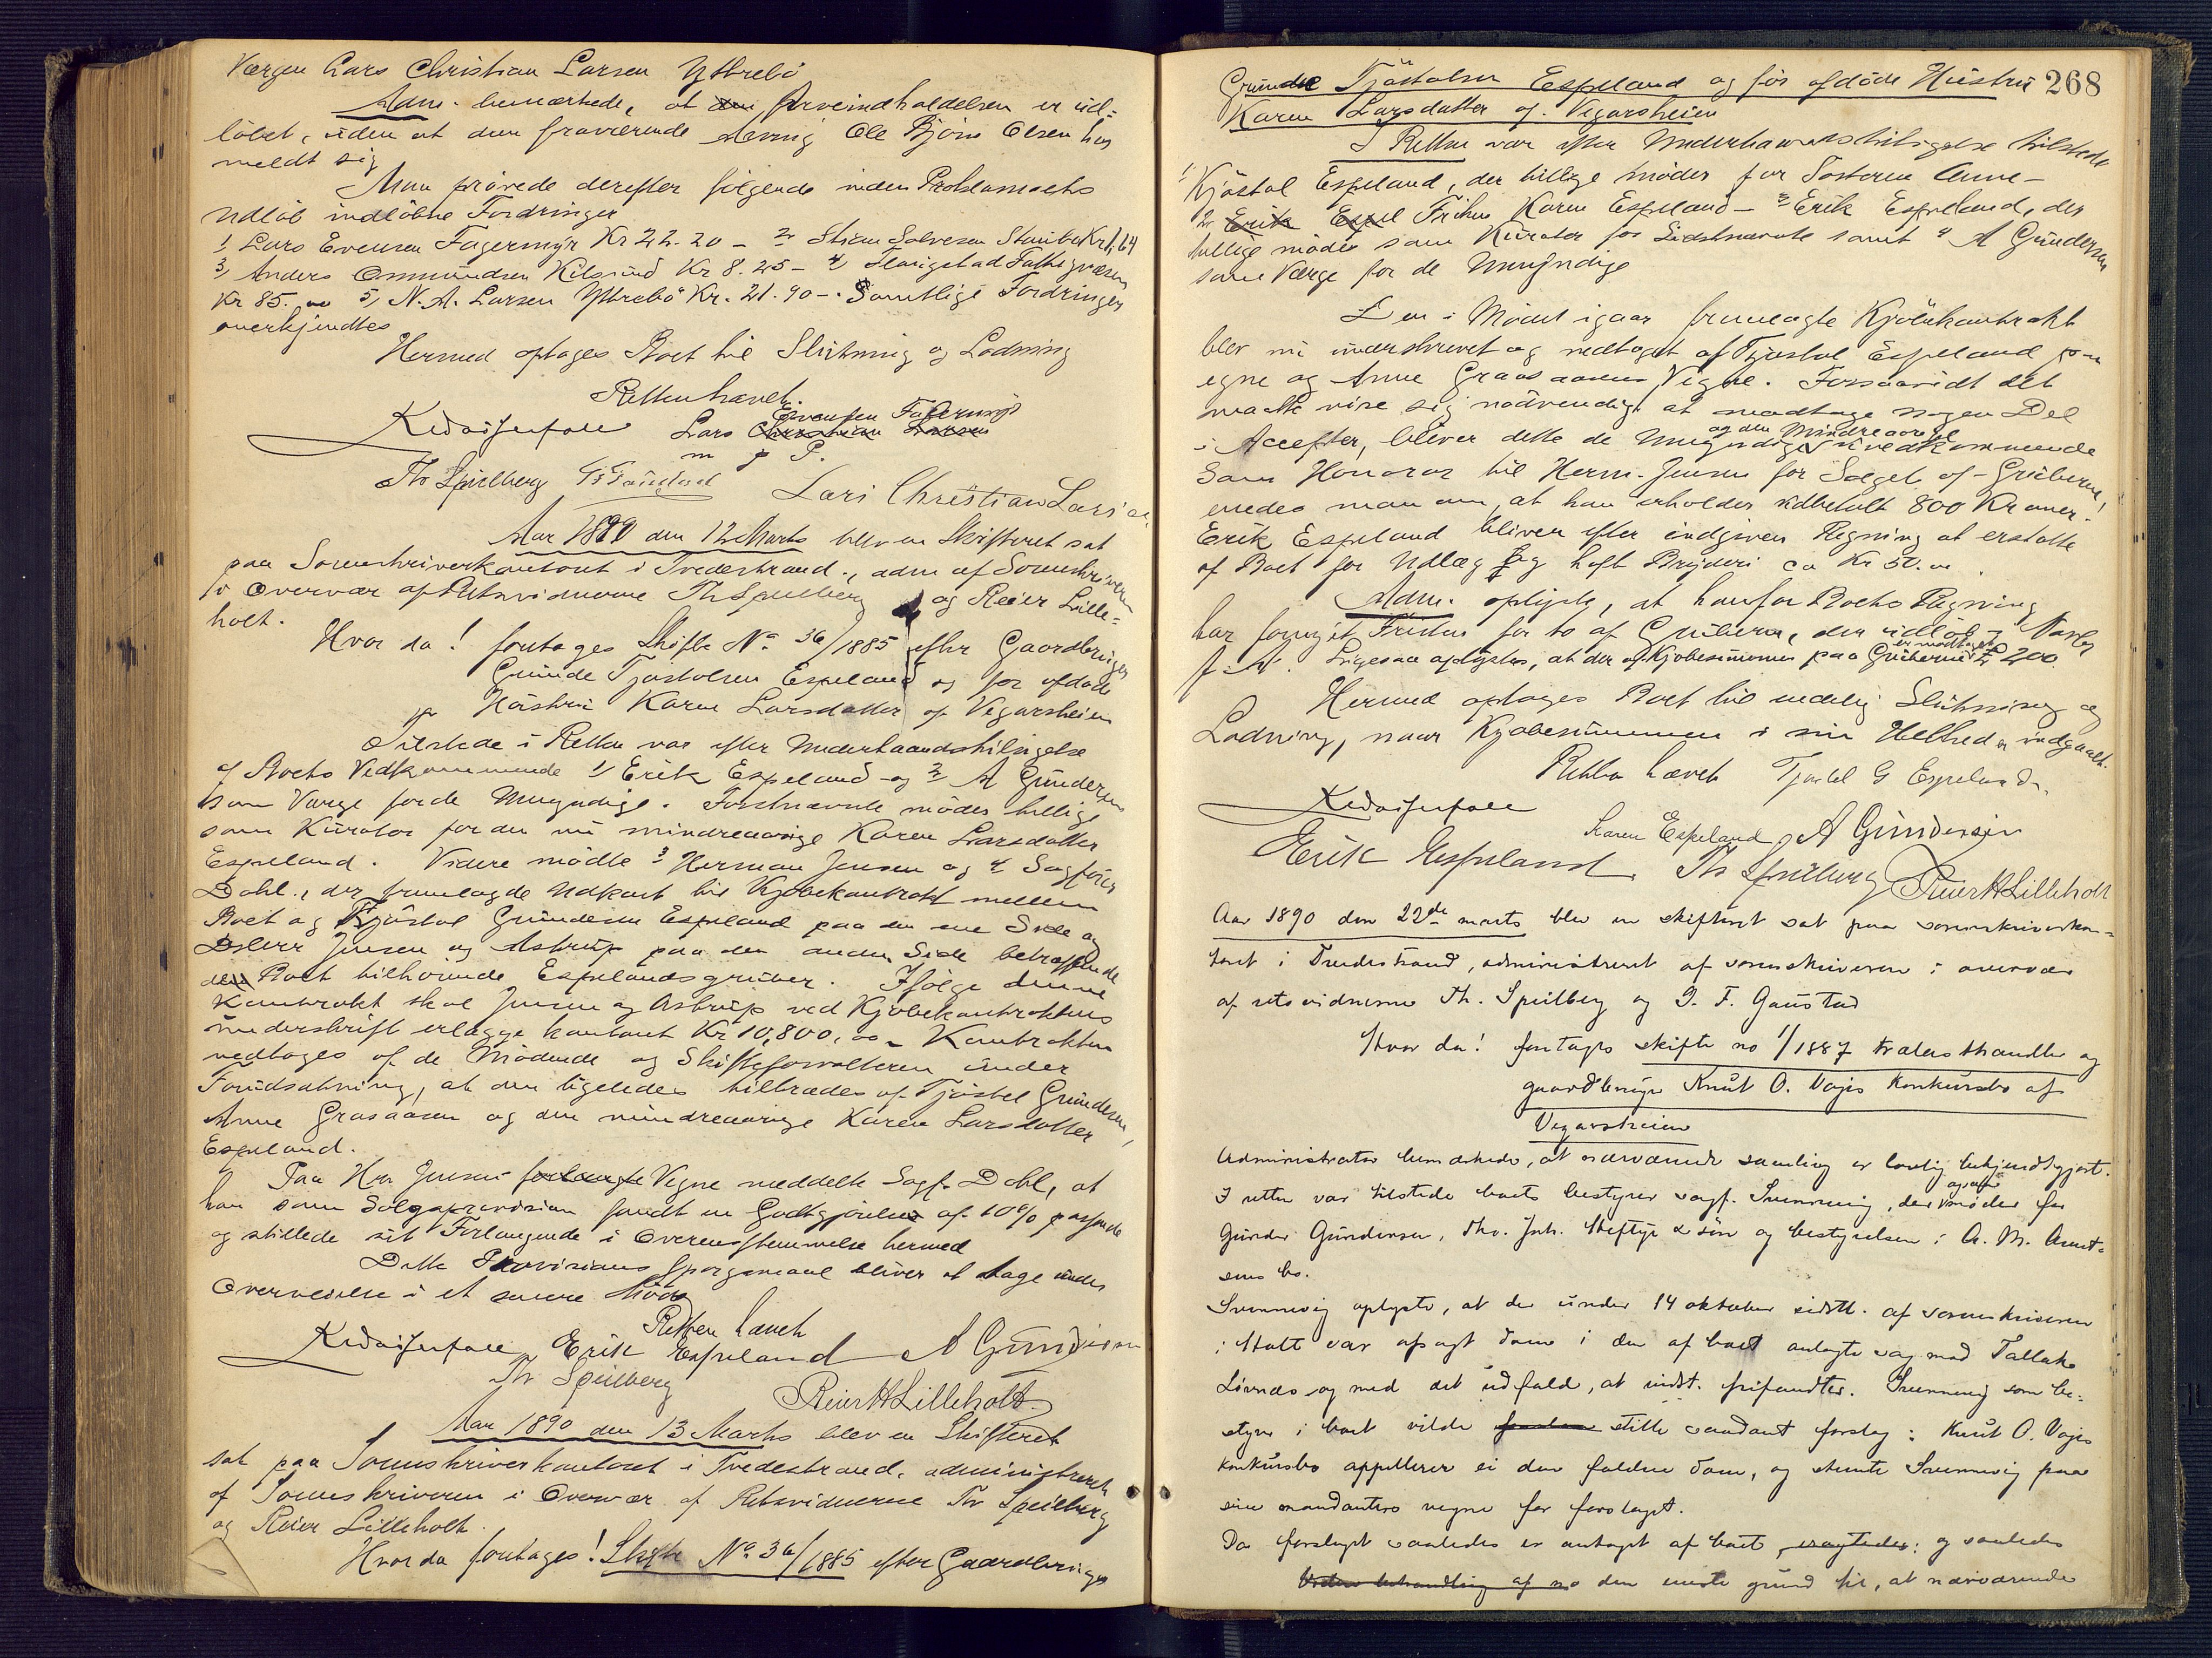 Værgen Lars Christian Larsen Ytterbö
Adm. bemærkede, at den Arveindkaldelsen er ud=
löbet, uden at den fraværende Arving Ole Björn Olsen har
meldt sig
Man prövede derefter fölgende inden Proklamaets
Udlöb indlöbne Fordringer
1 Lars Evensen Fagermyr Kr 22.20 – 2 Stian Salvesen Staubö Kr 1,64
3, Anders Ommundsen Kilsund Kr 8.25 – 4
Kr 85. 5, N. A. Larsen Ytterbö Kr. 21.90 –. Samtlige Fordringer
anerkjendtes
Hermed optages Boet til Slutning og Lodning
Retten hævet.
Lars Evensen Fagermyr
Christian Larsen
m p P.
Th Speilberg Lars Christian Larsen
Aar 1890 den 12 Marts blev en Skifteret sat
paa Sorenskriverkontoret i Tvedestrand, adm af Sorenskriveren
i Overvær af Retsvidnerne Th Speilberg og Reier Lille=
holt.
Hvor da! foretoges Skifte No 36/1885 efter Gaardbruger
Gunde Tjöstolsen Espeland og för afdöde
Hustru Karen Larsdatter af Vegarsheien
Tilstede i Retten var efter Underhaandstilsigelse
af Boets Vedkommende 1/ Erik Espeland og 2 A Gundersen
som Værge for de Umyndige. Förstnævnte möder tillige
som Kurator for den nu mindreaarige Karen Larsdatter
Espeland. Videre mödte 3 Herman Jensen og 4 Sagförer
Dahl, der fremlagde Udkast til Kjöbekontrakt mellem
Boet og Tjöstol Gundersen Espeland paa den ene Side og
DHerr Jensen og Astrup paa den anden Side betræffende
den Boet tilhörende Espelandsgruber. Ifölge denne
Kontrakt skal Jensen og Astrup ved Kjöbekontraktens
Underskrift erlægge kontant Kr 10,800,00 – Kontrakten
vedtoges af de Mödende og Skifteforvalteren under
Forudsætning, at den ligeledes tiltrædes af Tjöstel Gundersen,
Anne Grasaasen og den mindreaarige Karen Larsdatter
Espeland.
Paa Hr Jensens forlangte Vegne meddelte Sagf. Dahl, at
han som Salgsprovision fandt en Godtgjörelse af 10% passende
og stillede sit Forlangende i Overensstemmelse hermed
Dette Provisions Spörgsmaal bliver at tage under
Overveielse i et senere Möde
Retten hævet
Erik Espeland A Gundersen
Th Speilberg
Reier H Lilleholt.
Aar 1890 den 13 Marts blev en Skifteret
sat paa Sorenskriverkontoret i Tvedestrand, administreret
af Sorenskriveren i Overvær af Retsvidnerne Th Speilberg
og Reier Lilleholt.
Hvor da foretoges! Skifte No 36/1885 efter Gaardbruger
268
Gunde Tjöstolsen Espeland og för afdöde Hustru
Karen Larsdatter af Vegarsheien
I Retten var efter Underhaandstilsigelse tilstede
1/ Kjöstol Espeland, der tillige möder for Sösteren Anne –
2 Erik Espel Fröken Karen Espeland – 3 Erik Espeland, der
tillige möder som Kurator for Sidstnævnte samt 4 A Gundersen
som Værge for de Umyndige
Den i Mödet igaar fremlagte Kjöbekontrakt
blev nu underskrevet og vedtaget af Tjöstol Espeland paa
egne og Anne Graasaasens Vegne. Forsaavidt det
maatte vise sig nödvendigt at modtage nogen Del
i Accepter, bliver dette de Umyndige og den Mindreaarige uvedkommende
Som Honorar til Herm. Jensen for Salget af Gruberne,
enedes man om, at han erholder udbetalt 800 Kroner.
Erik Espeland bliver efter indgiven Regning at erstatte
af Boet for Udlæg og havt Bryderi ca Kr 50.00
Adm. oplyste, at han for Boets Regning
har fornyet Fristen for to af Gruberne, der udlöb
f. A. Ligesaa oplystes, at der af Kjöbesummen paa Gruberne er modtaget £ 200
Hermed optages Boet til endelig Slutning og
Lodning, naar Kjöbesummen i sin Helhed er indgaaet.
Retten hævet Tjöstel G Espeland.
Karen Espeland A Gundersen
Erik Espeland Th Speilberg Reier H Lilleholt
Aar 1890 den 22de marts blev en skifteret sat paa sorenskriverkon=
toret i Tvedestrand, administreret af sorenskriveren i overvær
af retsvidnerne Th. Speilberg og G. F. Gaustad
Hvor da! foretages skifte no 1/1887 trælasthandler og
gaardbruger Knut O. Vajes konkursbo af
Vegarsheien
Administrator bemærkede, at nærværende samling er lovlig bekjendtgjort.
I retten var tilstede boets bestyrer sagf. Svennevig, der ogsaa möder for
Gunder Gundersen, Tho. Joh. Heftye & sön og bestyrelsen i A. M. Arnt=
sens bo.
Svennevig oplyste, at der under 14 oktober sidstl. af sorenskriveren
i Holt var afsagt dom i den af boet anlagte sag mod Tallak
Lövnæs og med det udfald, at indst. frifandtes. Svennevig som be=
styrer i boet vilde stille saadant forslag: Knut O. Vajes
konkursbo appellerer ei den faldne dom, og stemte Svennevig paa
sine mandanters vegne for forslaget.
Da forslaget saaledes er antaget af boet, eragtedes: og saaledes
Videre behandling af no den eneste grund til, at nærværende